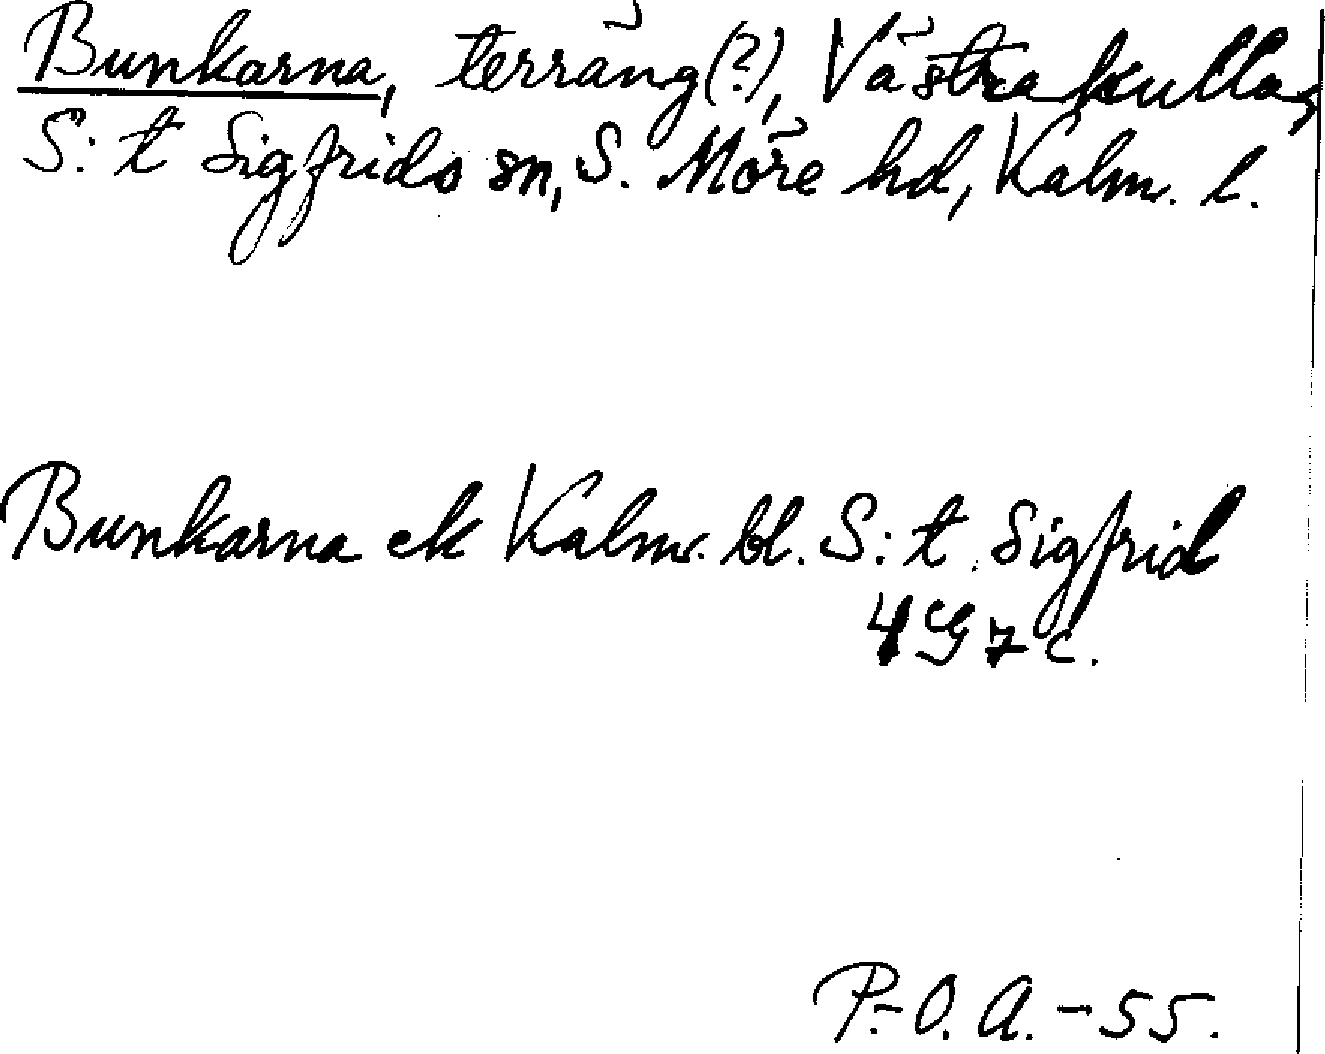 Bunkarna, terräng(?), Västrakulla,
S:t Sigfrids sn, S. Möre hd, Kalm. l.
Bunkarna ek Kalm. bl. S:t Sigfrid
4G7c.
P.-O. A. - 55.